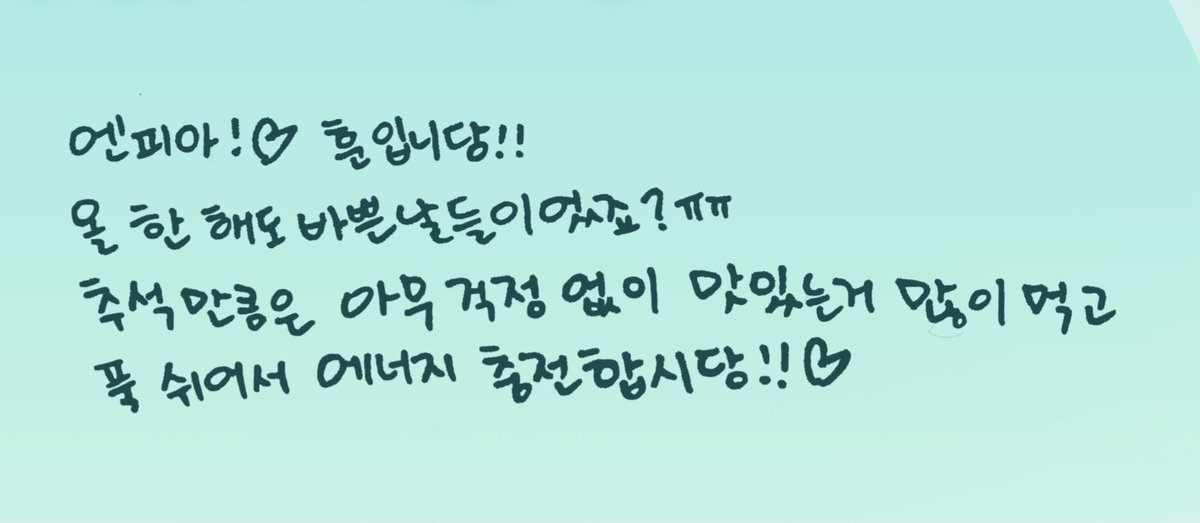 엔피아!♡ 훈입니당!!
올 한 해도 바쁜날들이었죠?ㅠㅠ
추석만큼은 아무 걱정 없이 맛있는거 많이 먹고
푹 쉬어서 에너지 충전합시당!!♡